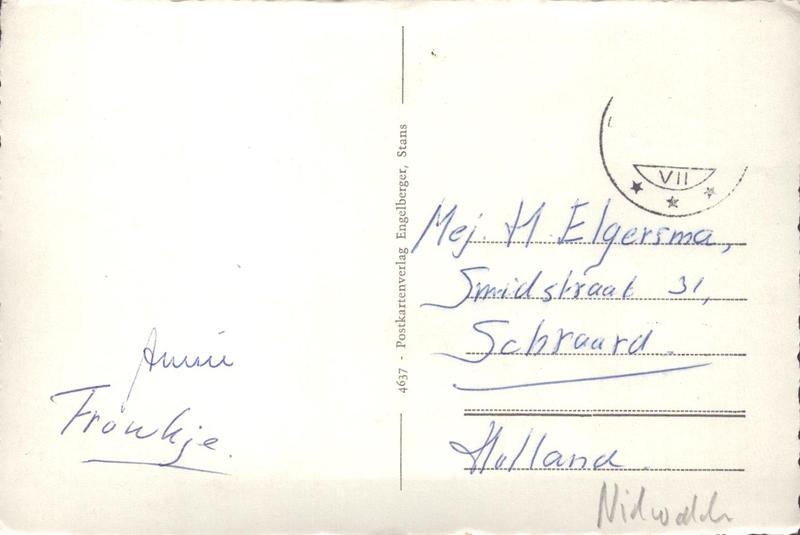 Annie
Froukje.
4637 - Postkartenverlag Engelberger, Stans
VII
Mej H Elgersma,
Smidstraat 31,
Schraard.
Holland.
Nidwalden